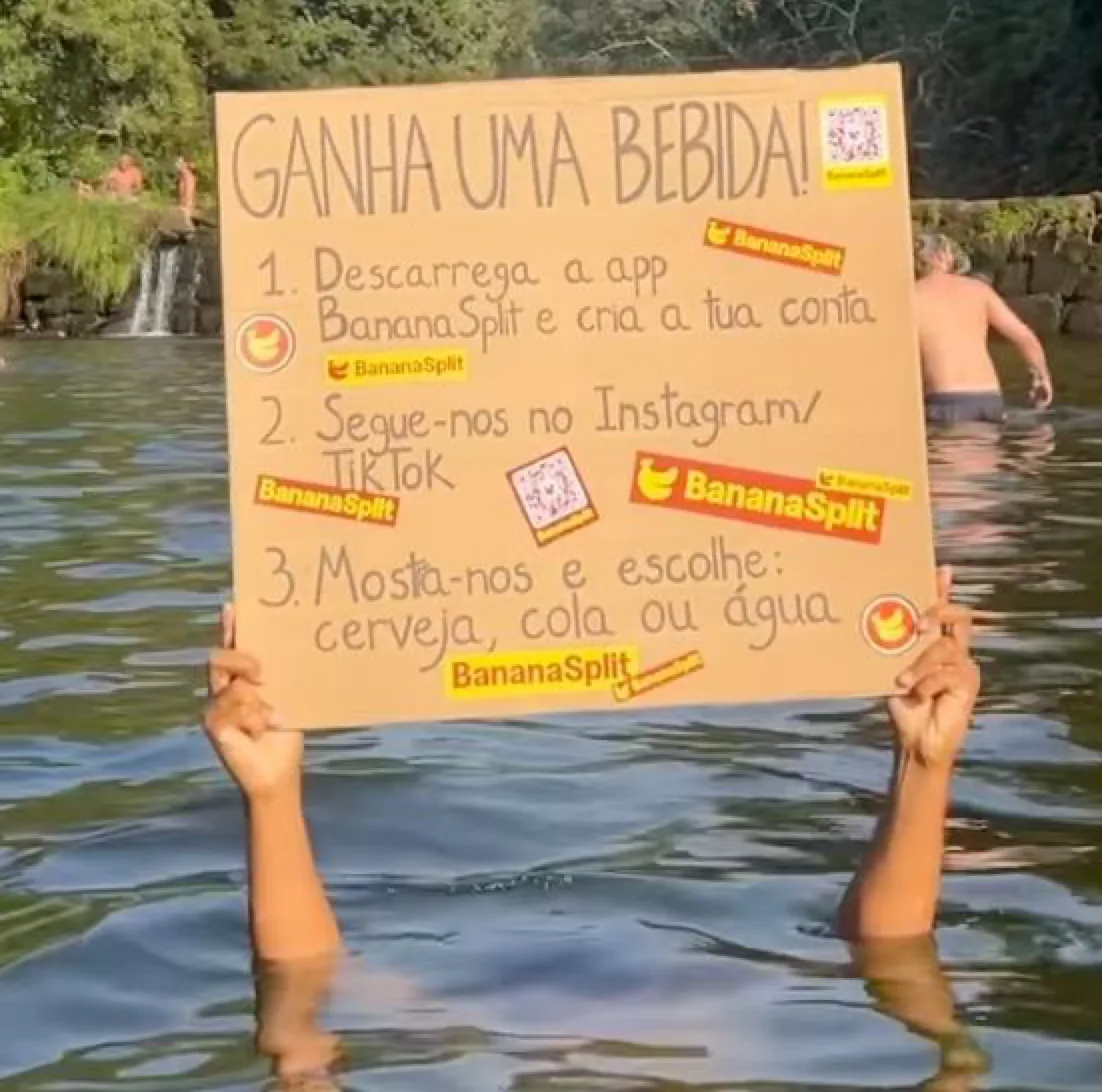 GANHA UMA BEBIDA!
BananaSplit
BananaSplit
1. Descarrega a app
BananaSplit e cria a tua conta
BananaSplit
2. Segue-nos no Instagram/
TikTok
BananaSplit
BananaSplit
BananaSplit
BananaSplit
3. Mostra-nos e escolhe:
cerveja, cola ou água
BananaSplit
BananaSplit